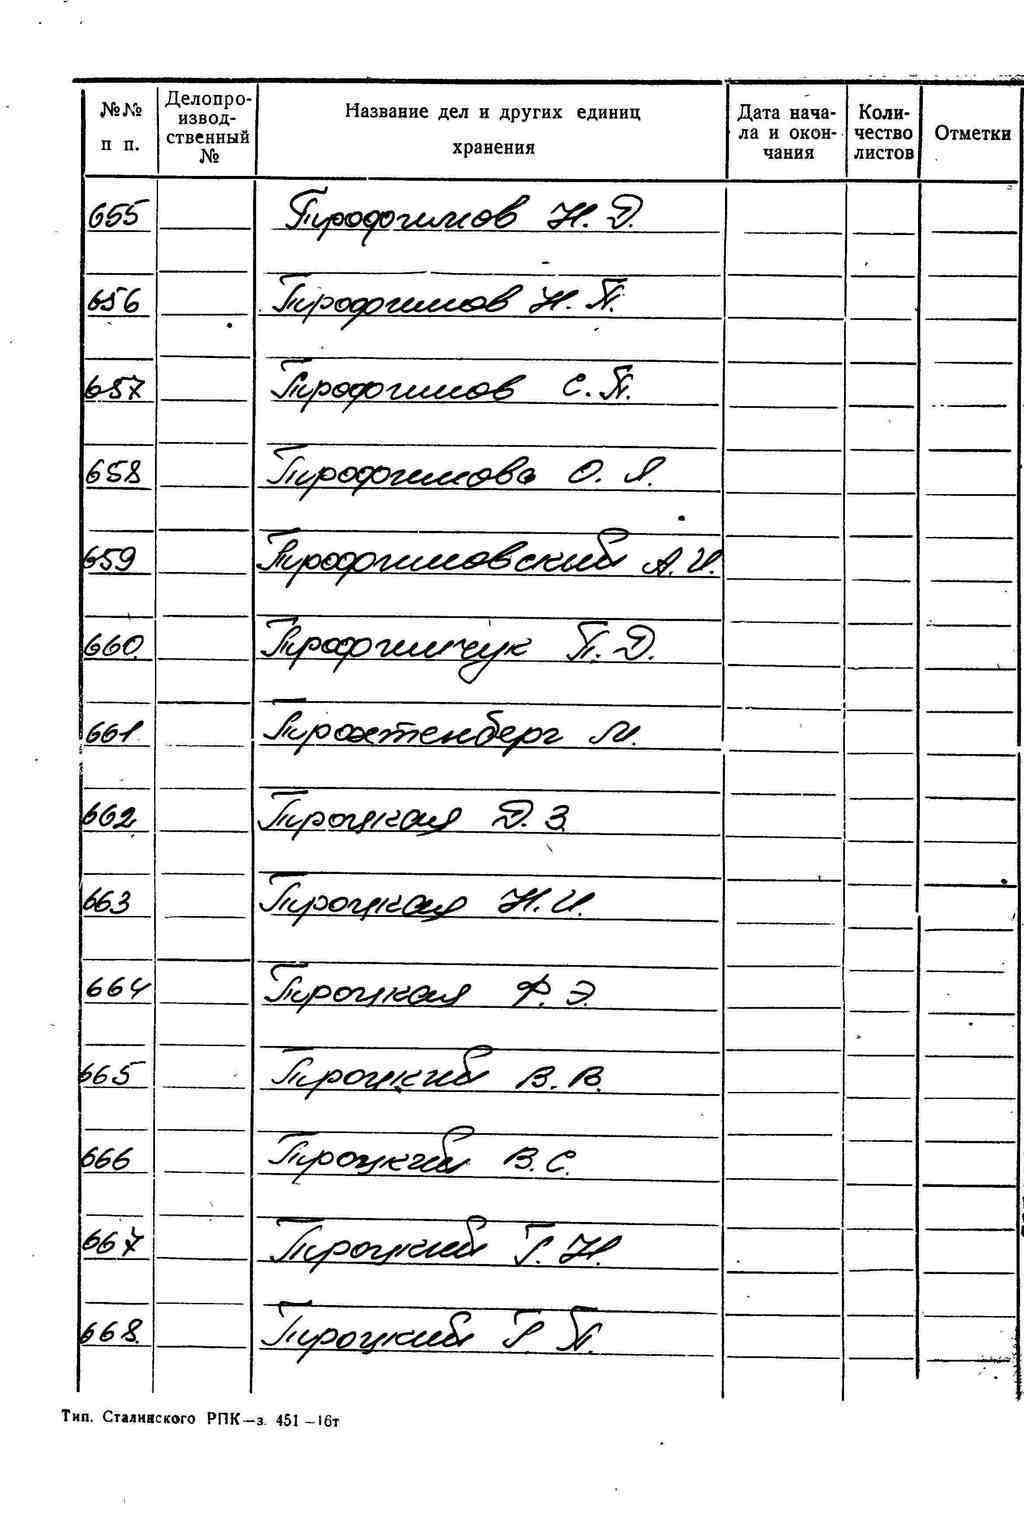 №№ п п.
Делопроизводственный №
Название дел и других единиц хранения
Дата начала и окончания
Количество листов
Отметки
655 Трофимов Н. Д.
656 Трофимов Н. П.
657 Трофимов С. П.
658 Трофимова О. Я.
659 Трофимовский А. И.
660. Трофимчук П. Д.
661. Трахтенберг М.
662. Троцкая Д. З.
663 Троцкая Н. И.
664 Троцкая Ф. Э.
665 Троцкий В. В.
666 Троцкий В. С.
667 Троцкий Г. Н.
668. Троцкий Г. П.
Тип. Сталинского РПК—з. 451—16т